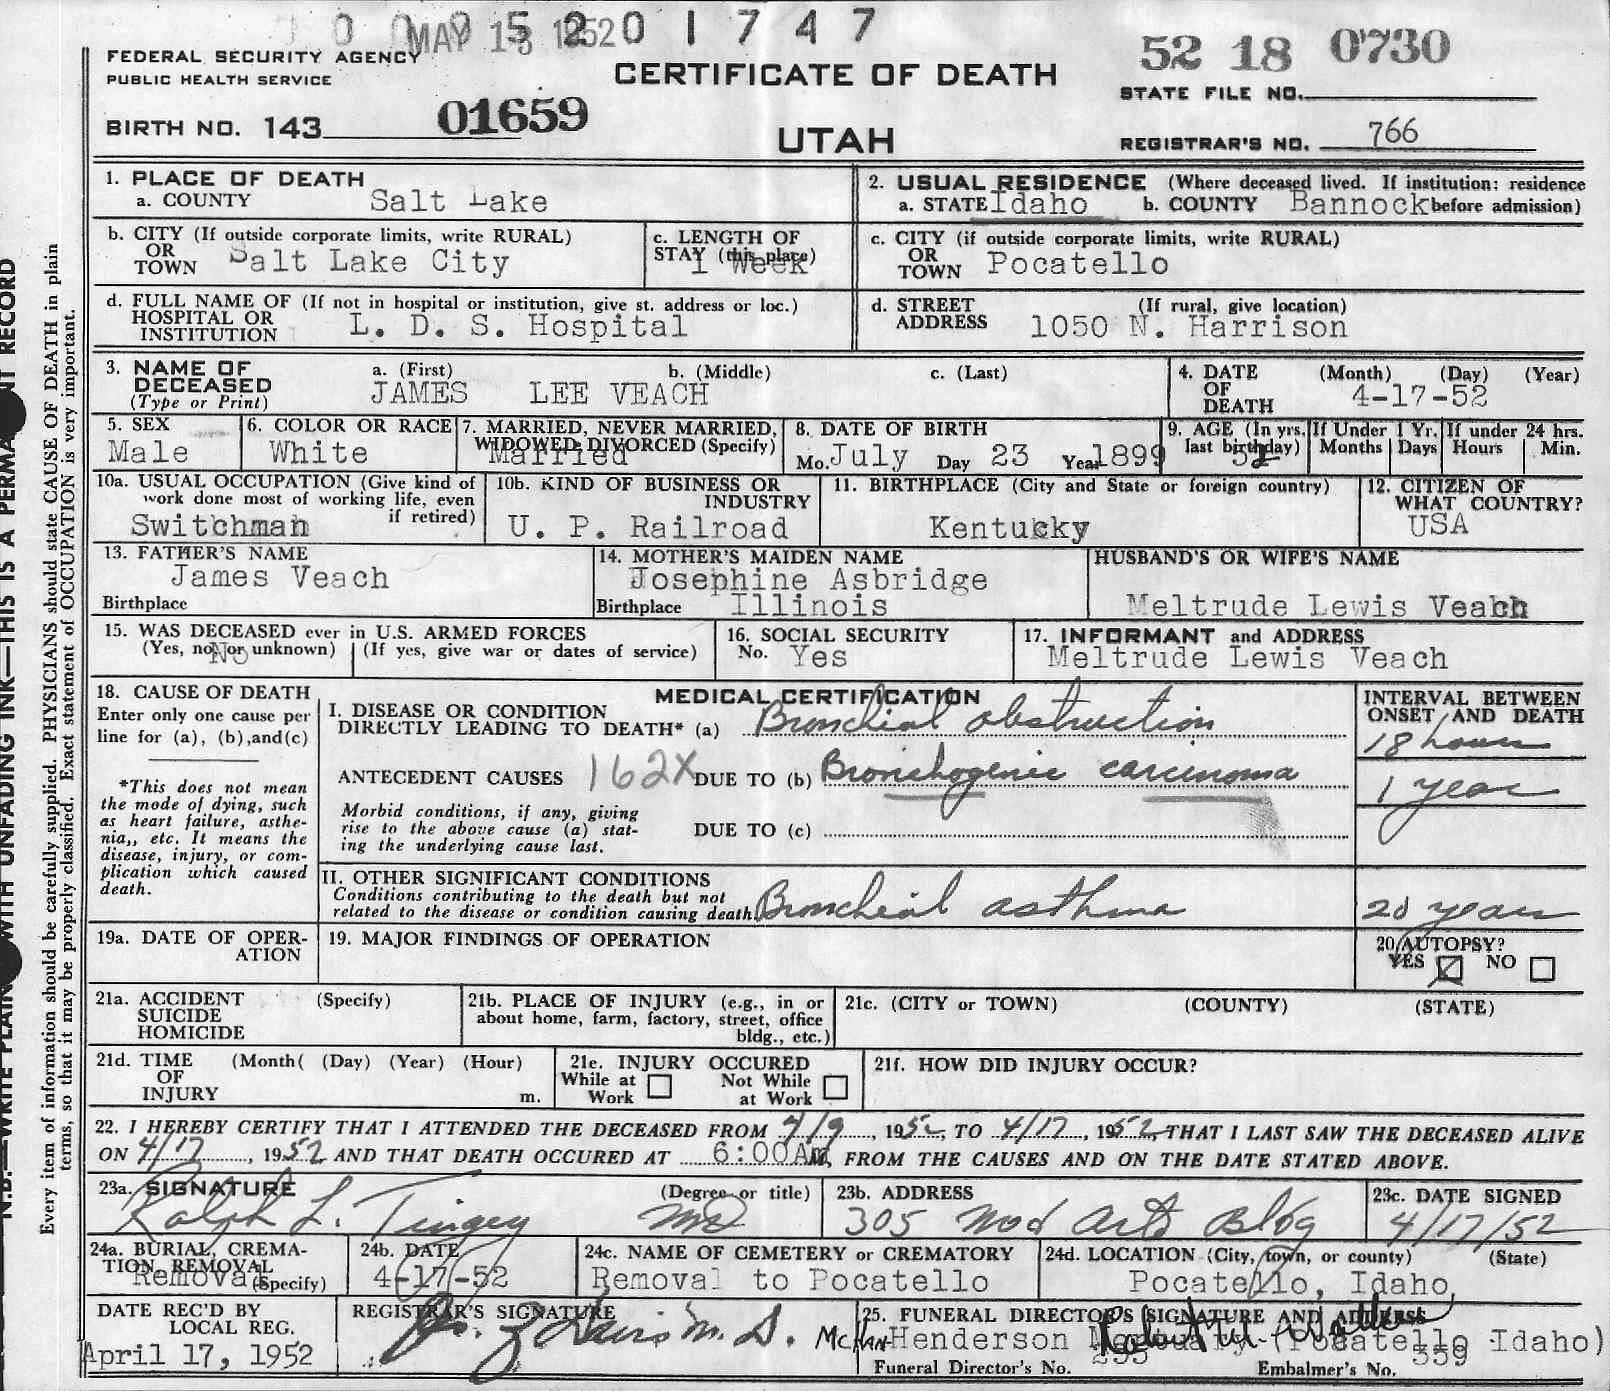 MAY 15 1952 0 1 7 4 7
FEDERAL SECURITY AGENCY
PUBLIC HEALTH SERVICE
CERTIFICATE OF DEATH
52 18 0730
STATE FILE NO.
BIRTH NO. 143 01659
UTAH
REGISTRAR'S NO. 766
1. PLACE OF DEATH
a. COUNTY Salt Lake
2. USUAL RESIDENCE (Where deceased lived. If institution: residence
a. STATE Idaho b. COUNTY Bannock before admission)
b. CITY (If outside corporate limits, write RURAL)
OR
TOWN Salt Lake City
c. LENGTH OF
STAY (this place)
1 Week
c. CITY (if outside corporate limits, write RURAL)
OR
TOWN Pocatello
d. FULL NAME OF (If not in hospital or institution, give st. address or loc.)
HOSPITAL OR
INSTITUTION L. D. S. Hospital
d. STREET (If rural, give location)
ADDRESS 1050 N. Harrison
3. NAME OF a. (First) b. (Middle) c. (Last)
DECEASED
(Type or Print) JAMES LEE VEACH
4. DATE (Month) (Day) (Year)
OF
DEATH 4-17-52
5. SEX
Male
6. COLOR OR RACE
White
7. MARRIED, NEVER MARRIED,
WIDOWED, DIVORCED (Specify)
Married
8. DATE OF BIRTH
Mo. July Day 23 Year 1899
9. AGE (In yrs. last birthday)
If Under 1 Yr.
Months Days
If under 24 hrs.
Hours Min.
10a. USUAL OCCUPATION (Give kind of
work done most of working life, even
if retired)
Switchman
10b. KIND OF BUSINESS OR
INDUSTRY
U. P. Railroad
11. BIRTHPLACE (City and State or foreign country)
Kentucky
12. CITIZEN OF
WHAT COUNTRY?
USA
13. FATHER'S NAME
James Veach
Birthplace
14. MOTHER'S MAIDEN NAME
Josephine Asbridge
Birthplace Illinois
HUSBAND'S OR WIFE'S NAME
Meltrude Lewis Veach
15. WAS DECEASED ever in U.S. ARMED FORCES
(Yes, no, or unknown) (If yes, give war or dates of service)
No
16. SOCIAL SECURITY
No. Yes
17. INFORMANT and ADDRESS
Meltrude Lewis Veach
18. CAUSE OF DEATH
Enter only one cause per
line for (a), (b),and(c)
*This does not mean
the mode of dying, such
as heart failure, asthe-
nia,, etc. It means the
disease, injury, or com-
plication which caused
death.
MEDICAL CERTIFICATION
I. DISEASE OR CONDITION
DIRECTLY LEADING TO DEATH* (a) Bronchial obstruction
ANTECEDENT CAUSES 162X DUE TO (b) Bronchogenic carcinoma
Morbid conditions, if any, giving
rise to the above cause (a) stat-
ing the underlying cause last.
DUE TO (c)
II. OTHER SIGNIFICANT CONDITIONS
Conditions contributing to the death but not
related to the disease or condition causing death. Bronchial asthma
INTERVAL BETWEEN
ONSET AND DEATH
18 hours
1 year
20 years
19a. DATE OF OPER-
ATION
19. MAJOR FINDINGS OF OPERATION
20. AUTOPSY?
YES NO
21a. ACCIDENT (Specify)
SUICIDE
HOMICIDE
21b. PLACE OF INJURY (e.g., in or
about home, farm, factory, street, office
bldg., etc.)
21c. (CITY or TOWN) (COUNTY) (STATE)
21d. TIME (Month( (Day) (Year) (Hour)
OF
INJURY m.
21e. INJURY OCCURED
While at Work Not While at Work
21f. HOW DID INJURY OCCUR?
22. I HEREBY CERTIFY THAT I ATTENDED THE DECEASED FROM 4/9, 1952, TO 4/17, 1952, THAT I LAST SAW THE DECEASED ALIVE
ON 4/17, 1952 AND THAT DEATH OCCURED AT 6:00AM, FROM THE CAUSES AND ON THE DATE STATED ABOVE.
23a. SIGNATURE (Degree or title)
Ralph L. Tingey MD
23b. ADDRESS
305 Med Arts Bldg
23c. DATE SIGNED
4/17/52
24a. BURIAL, CREMA-
TION, REMOVAL
(Specify)
Removal
24b. DATE
4-17-52
24c. NAME OF CEMETERY or CREMATORY
Removal to Pocatello
24d. LOCATION (City, town, or county) (State)
Pocatello, Idaho,
DATE REC'D BY
LOCAL REG.
April 17, 1952
REGISTRAR'S SIGNATURE
M.D.
25. FUNERAL DIRECTOR'S SIGNATURE AND ADDRESS
Henderson (Pocatello Idaho)
Funeral Director's No. Embalmer's No. 359
N.B.—WRITE PLAINLY WITH UNFADING INK—THIS IS A PERMANENT RECORD
Every item of information should be carefully supplied. PHYSICIANS should state CAUSE OF DEATH in plain
terms, so that it may be properly classified. Exact statement of OCCUPATION is very important.